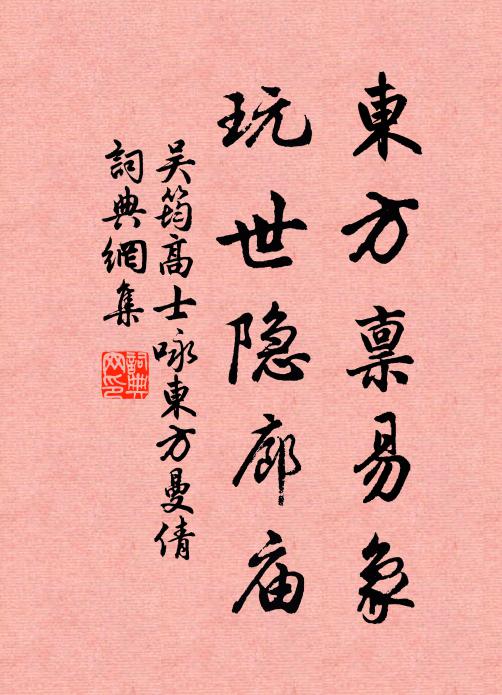 東方禀易象
玩世隐廊庙
吴筠高士咏東方曼倩
詞典網集
詞典
网印